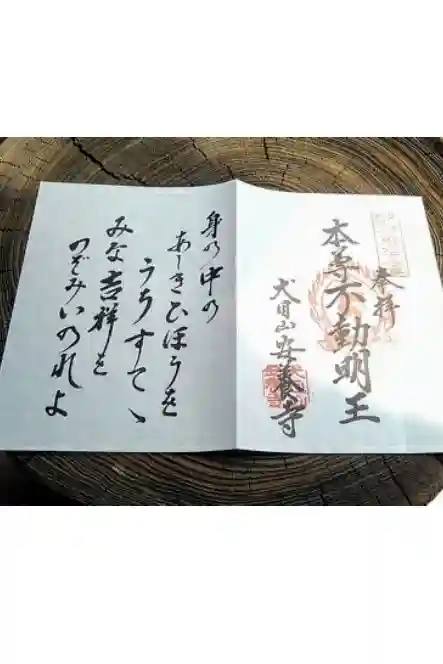 奉拝
本尊不動明王
犬目山安養寺
身の中の
あしきひほうを
うちすてゝ
みな吉祥を
のぞみいのれよ